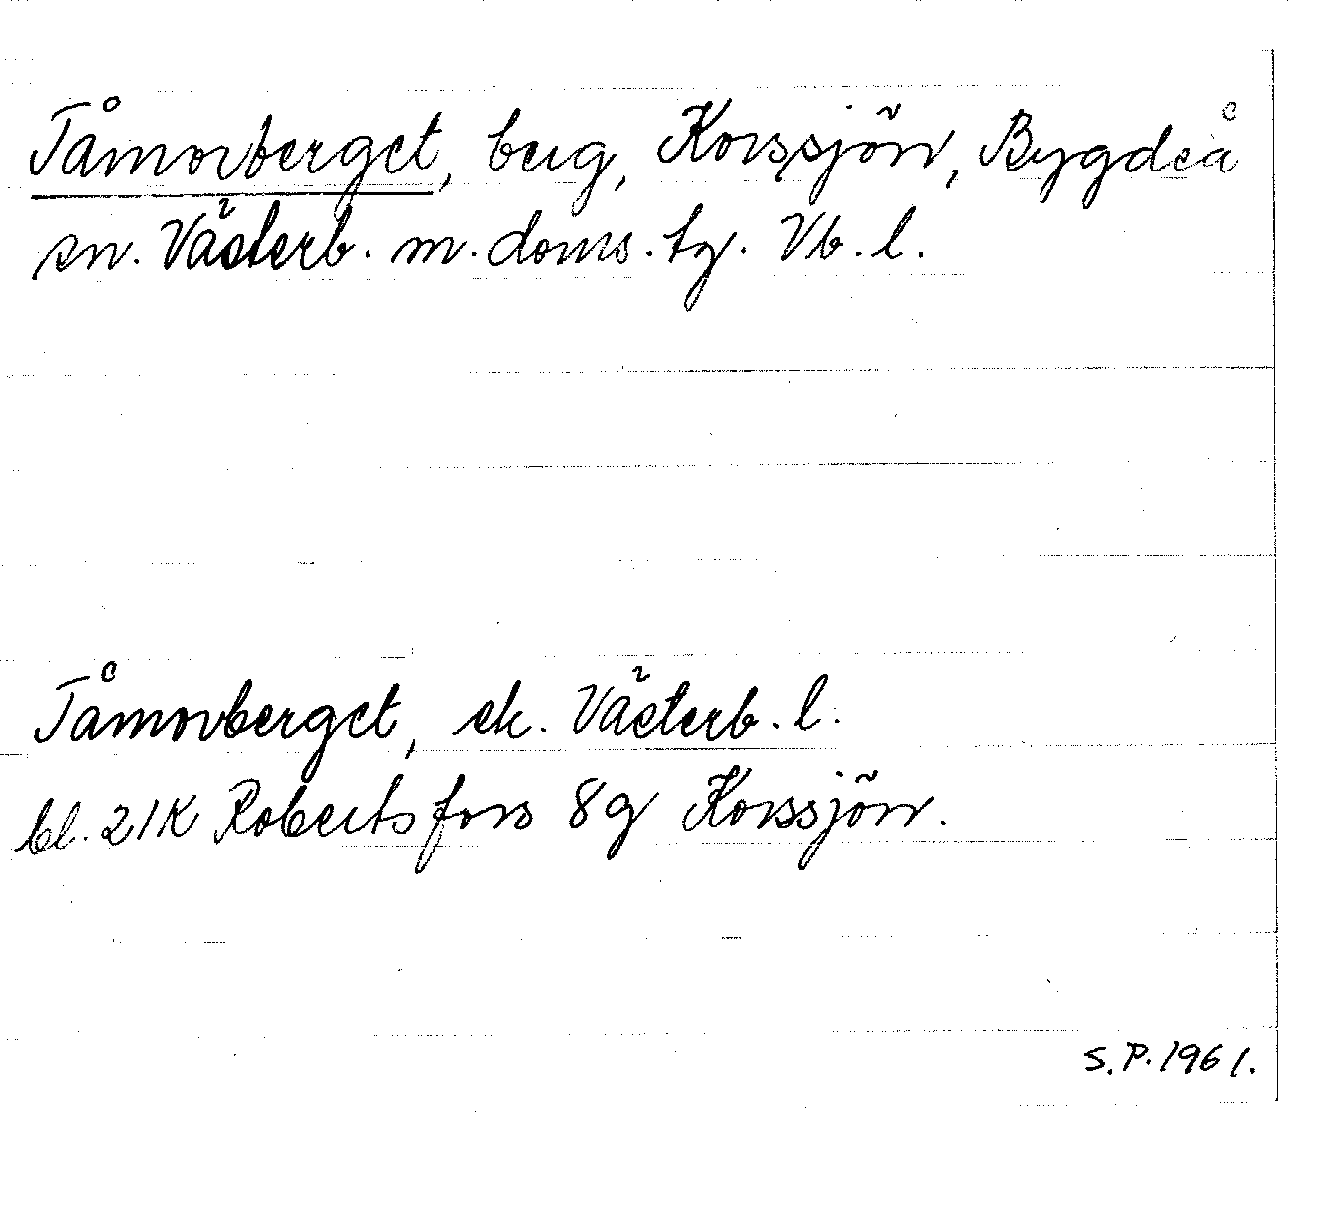 Tåmovberget, berg, Korssjön, Bygdeå
sn. Västerb. m. doms. tg. Vb. l.
Tåmovberget, ek. Västerb. l.
bl. 21K Robertsfors 8g Korssjön.
S.P. 1961.